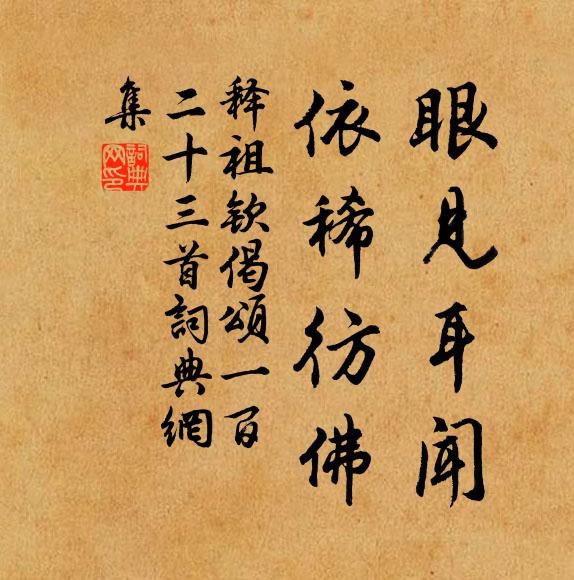 眼見耳聞
依稀彷佛
释祖钦偈頌一百
二十三首詞典網
集
詞典
网印